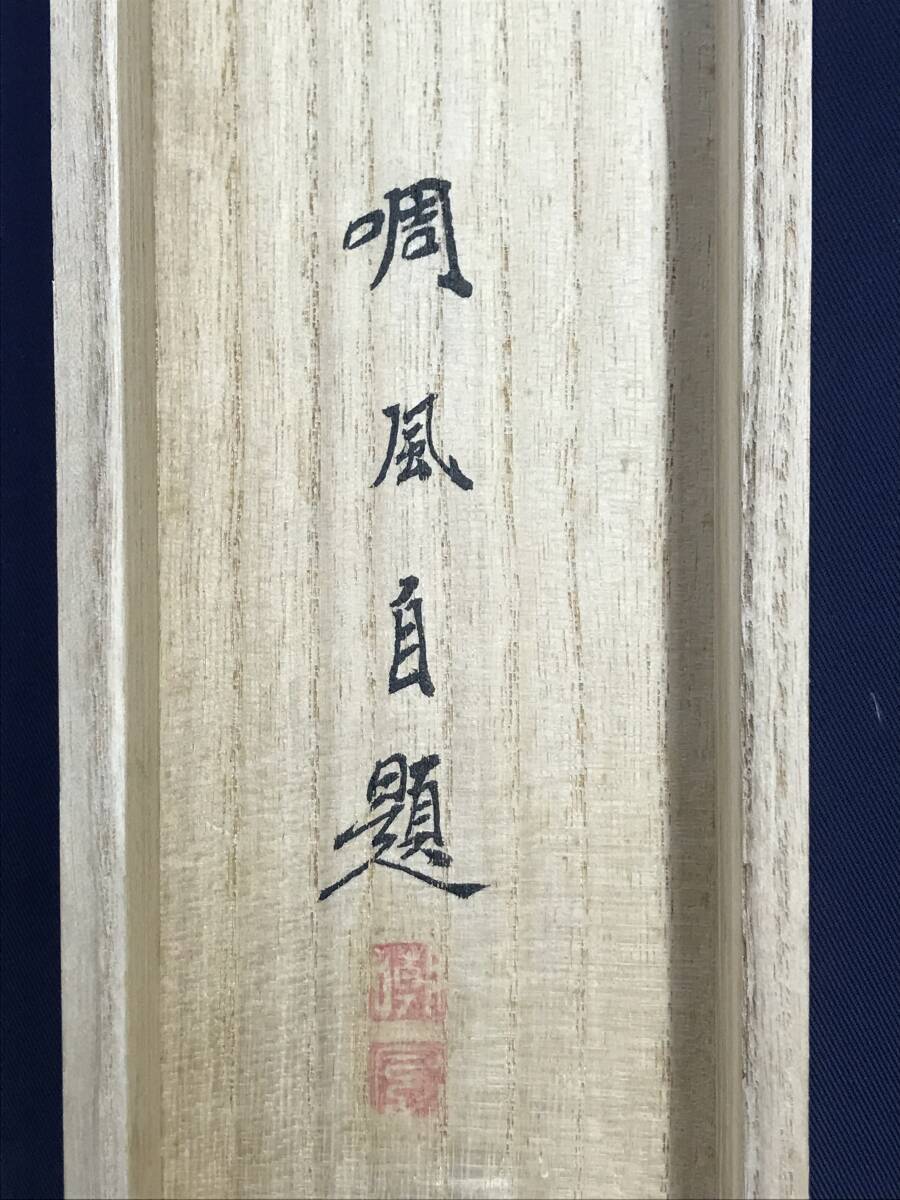 啁風自題